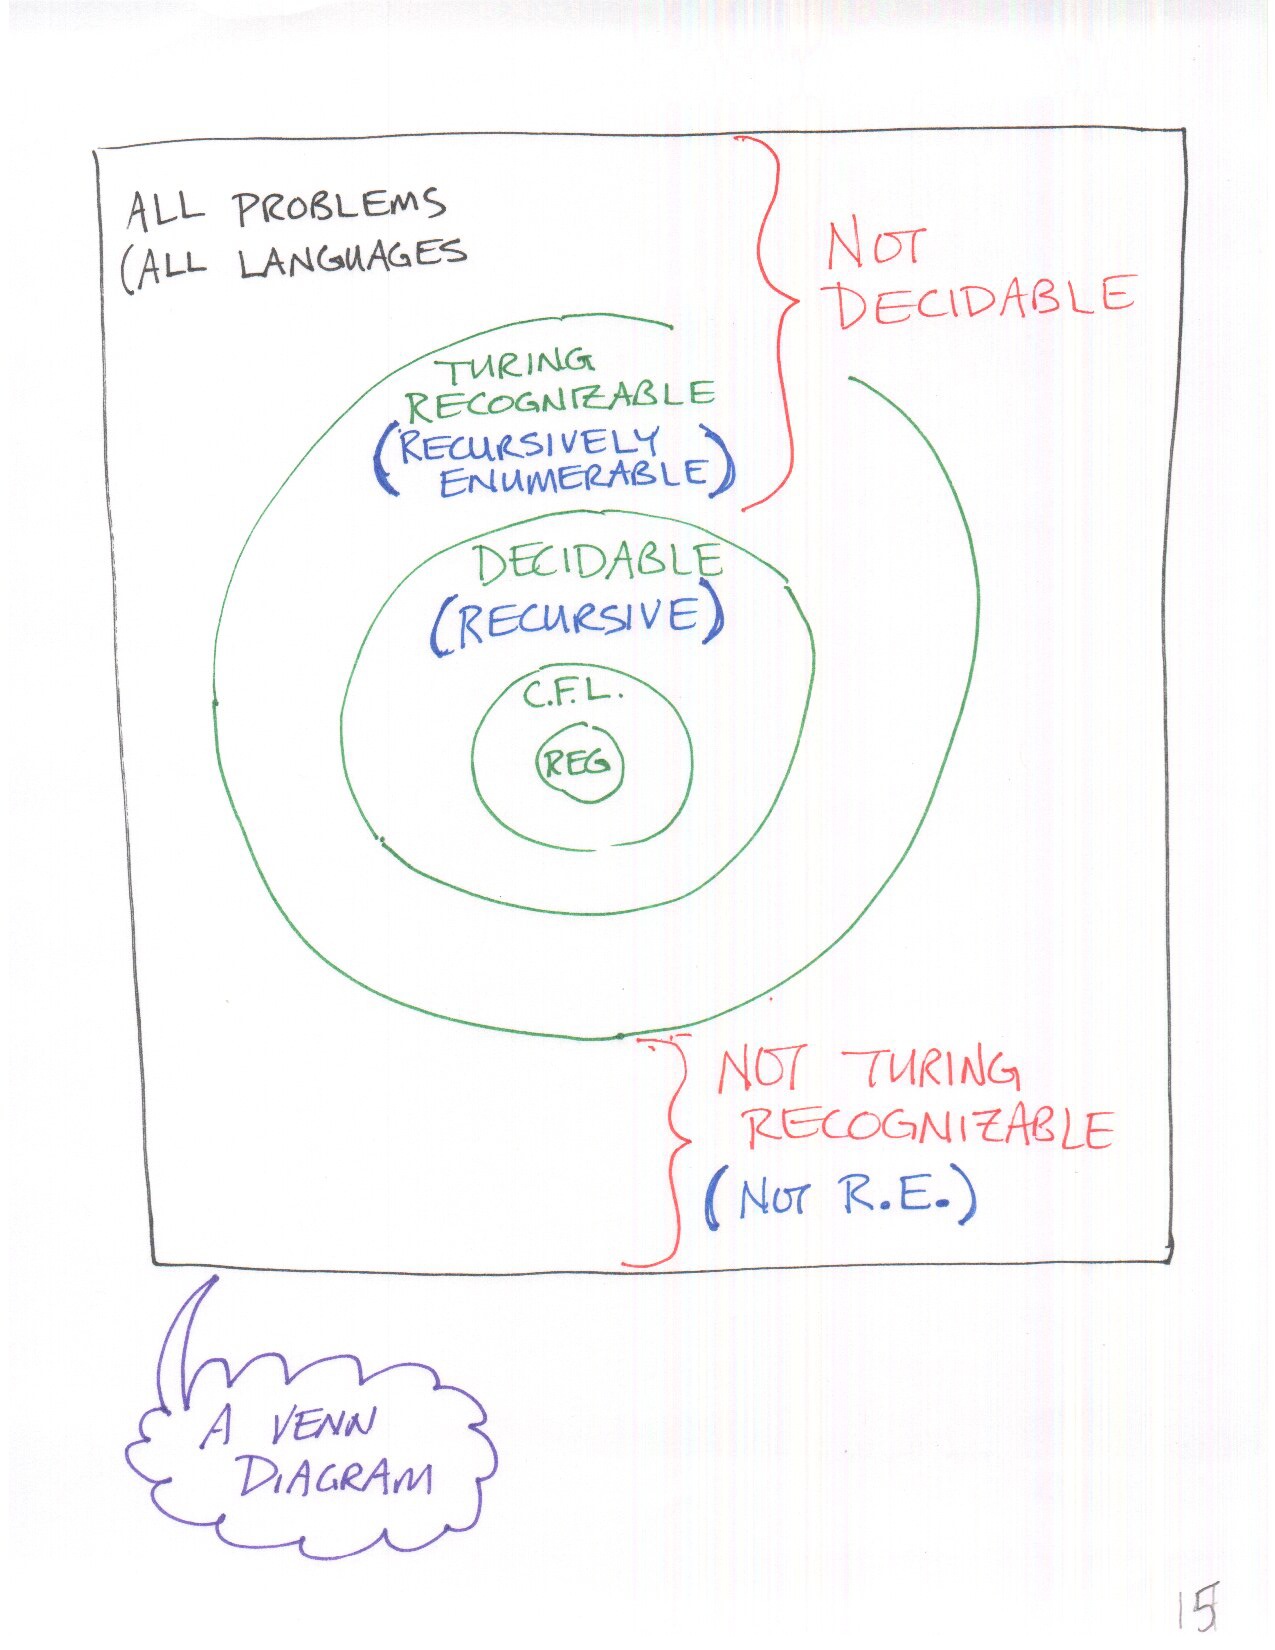 ALL PROBLEMS
(ALL LANGUAGES
NOT
DECIDABLE
TURING
RECOGNIZABLE
(RECURSIVELY
ENUMERABLE)
DECIDABLE
(RECURSIVE)
C.F.L.
REG
NOT TURING
RECOGNIZABLE
(NOT R.E.)
A VENN
DIAGRAM
15